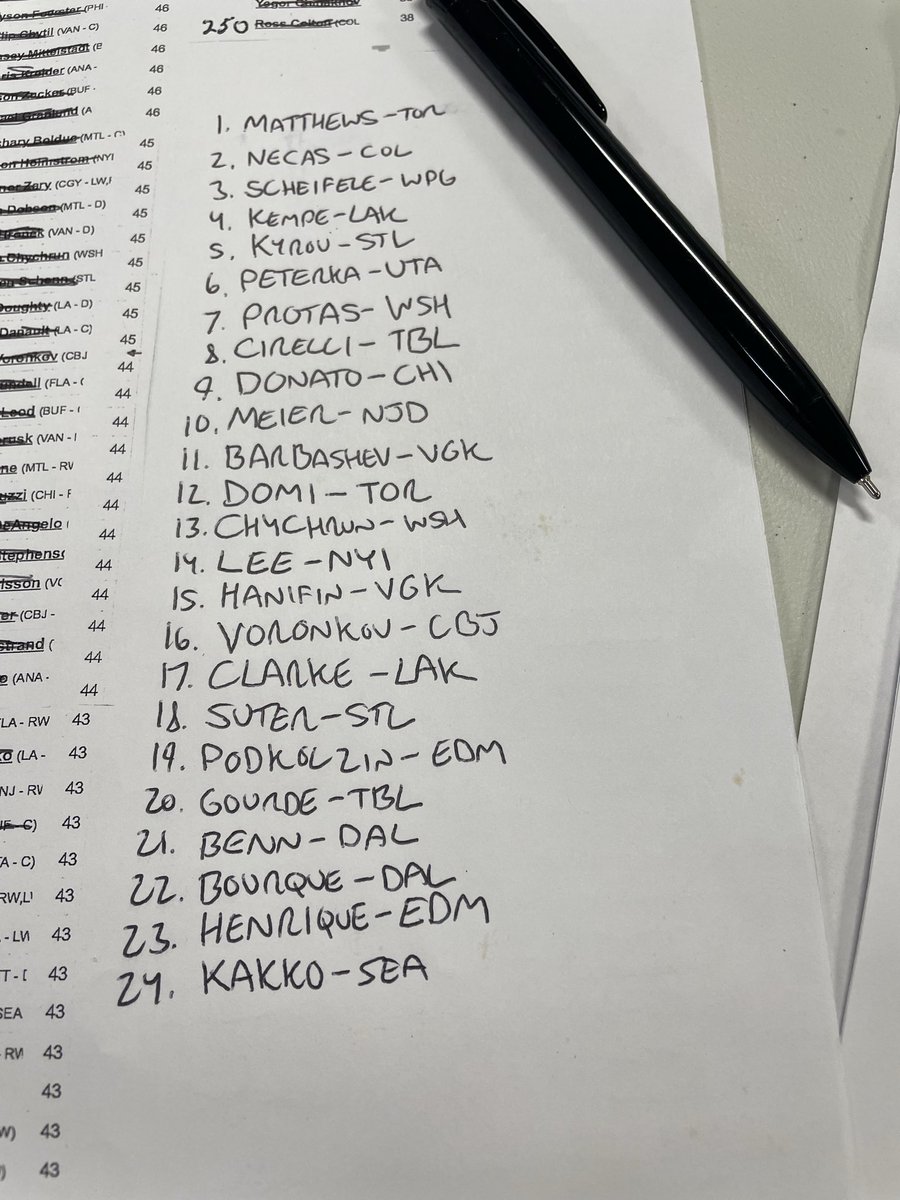 (PHI - 46
(VAN - C) 46
Mittelstadt (B 46
(ANA - 46
Zucker (BUF - 46
46
Bolduc (MTL - C) 45
(NYI 45
Zary (CGY - LW,F 45
Dobson (MTL - D) 45
(VAN - D) 45
Chychrun (WSH 45
Schenn (STL 45
Doughty (LA - D) 45
Danault (LA - C) 45
Voronkov (CBJ 44
(FLA - C 44
(BUF - 44
(VAN - 44
(MTL - RW 44
(CHI - F 44
44
44
44
(CBJ - 44
44
(ANA - 44
LA - RW 43
(LA - 43
NJ - RW 43
C) 43
A - C) 43
RW,L 43
- LW 43
43
SEA 43
- RW 43
43
43
43
250 Ross Colton (COL 38
1. MATTHEWS-TOR
2. NECAS-COL
3. SCHEIFELE-WPG
4. KEMPE-LAK
5. KYROU-STL
6. PETERKA-UTA
7. PROTAS-WSH
8. CIRELLI-TBL
9. DONATO-CHI
10. MEIER-NJD
11. BARBASHEV-VGK
12. DOMI-TOR
13. CHYCHRUN-WSH
14. LEE-NYI
15. HANIFIN-VGK
16. VORONKOV-CBJ
17. CLARKE-LAK
18. SUTER-STL
19. PODKOLZIN-EDM
20. GOURDE-TBL
21. BENN-DAL
22. BOURQUE-DAL
23. HENRIQUE-EDM
24. KAKKO-SEA